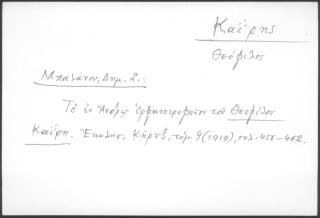 Καΐρης
Θεόφιλος
Μπαλάνου, Δημ. Σ.:
Τὸ ἐν Ἄνδρῳ Ὀρφανοτροφεῖον τοῦ Θεοφίλου
Καΐρη. Ἐκκλησ. Κήρυξ, τόμ. 9 (1919), σελ. 458-462.